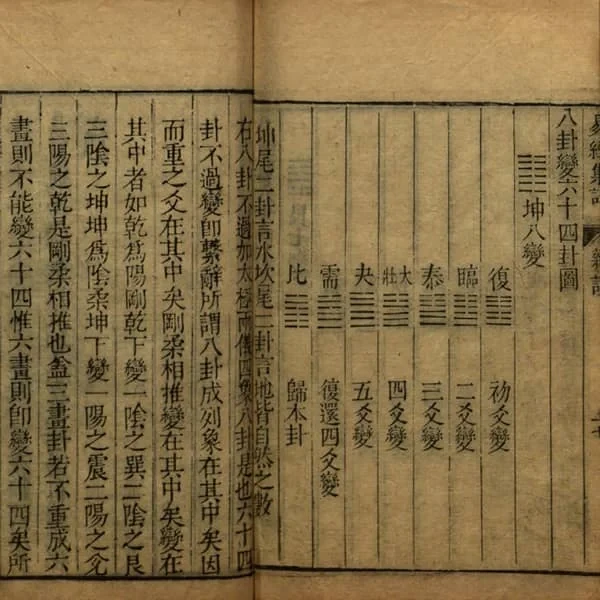 易經集註
八卦變六十四卦圖
坤八變
復 初爻變
臨 二爻變
泰 三爻變
大壯 四爻變
夬 五爻變
需 復還四爻變
比 歸本卦
坤尾二卦言水坎尾二卦言地皆自然之數
右八卦不過加太極兩儀四象八卦是也六十四
卦不過變即繫辭所謂八卦成列象在其中矣因
而重之爻在其中矣剛柔相推變在其中矣變在
其中者如乾爲陽剛乾下變一陰之巽二陰之艮
三陰之坤坤爲陰柔坤下變一陽之震二陽之兌
三陽之乾是剛柔相推也葢三畫卦若不重成六
畫則不能變六十四惟六畫則即變六十四矣所